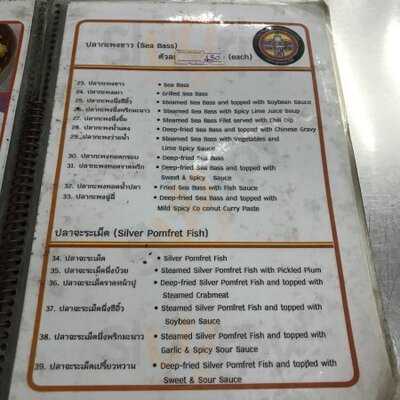 ปลากะพงขาว (Sea Bass)
ตัวละ 450 (each)
23. ปลากะพงขาว • Sea Bass
24. ปลากะพงเผา • Grilled Sea Bass
25. ปลากะพงนึ่งซีอิ๊ว • Steamed Sea Bass and topped with Soybean Sauce
26. ปลากะพงนึ่งพริกมะนาว • Steamed Sea Bass with Spicy Lime Juice Soup
27. ปลากะพงนึ่งจิ้ม • Steamed Sea Bass Filet served with Chili Dip
28. ปลากะพงน้ำแดง • Deep-fried Sea Bass and topped with Chinese Gravy
29. ปลากะพงว่ายน้ำ • Steamed Sea Bass with Vegetables and
Lime Spicy Sauce
30. ปลากะพงทอดกรอบ • Deep-fried Sea Bass
31. ปลากะพงทอดราดพริก • Deep-fried Sea Bass and topped with
Sweet & Spicy Sauce
32. ปลากะพงทอดน้ำปลา • Fried Sea Bass with Fish Sauce
33. ปลากะพงฉู่ฉี่ • Deep-fried Sea Bass and topped with
Mild Spicy Co conut Curry Paste
ปลาจะระเม็ด (Silver Pomfret Fish)
34. ปลาจะระเม็ด • Silver Pomfret Fish
35. ปลาจะระเม็ดนึ่งบ๊วย • Steamed Silver Pomfret Fish with Pickled Plum
36. ปลาจะระเม็ดราดหน้าปู • Deep-fried Silver Pomfret Fish and topped with
Steamed Crabmeat
37. ปลาจะระเม็ดนึ่งซีอิ๊ว • Steamed Silver Pomfret Fish and topped with
Soybean Sauce
38. ปลาจะระเม็ดนึ่งพริกมะนาว • Steamed Silver Pomfret Fish and topped with
Garlic & Spicy Sour Sauce
39. ปลาจะระเม็ดเปรี้ยวหวาน • Deep-fried Silver Pomfret Fish and topped with
Sweet & Sour Sauce